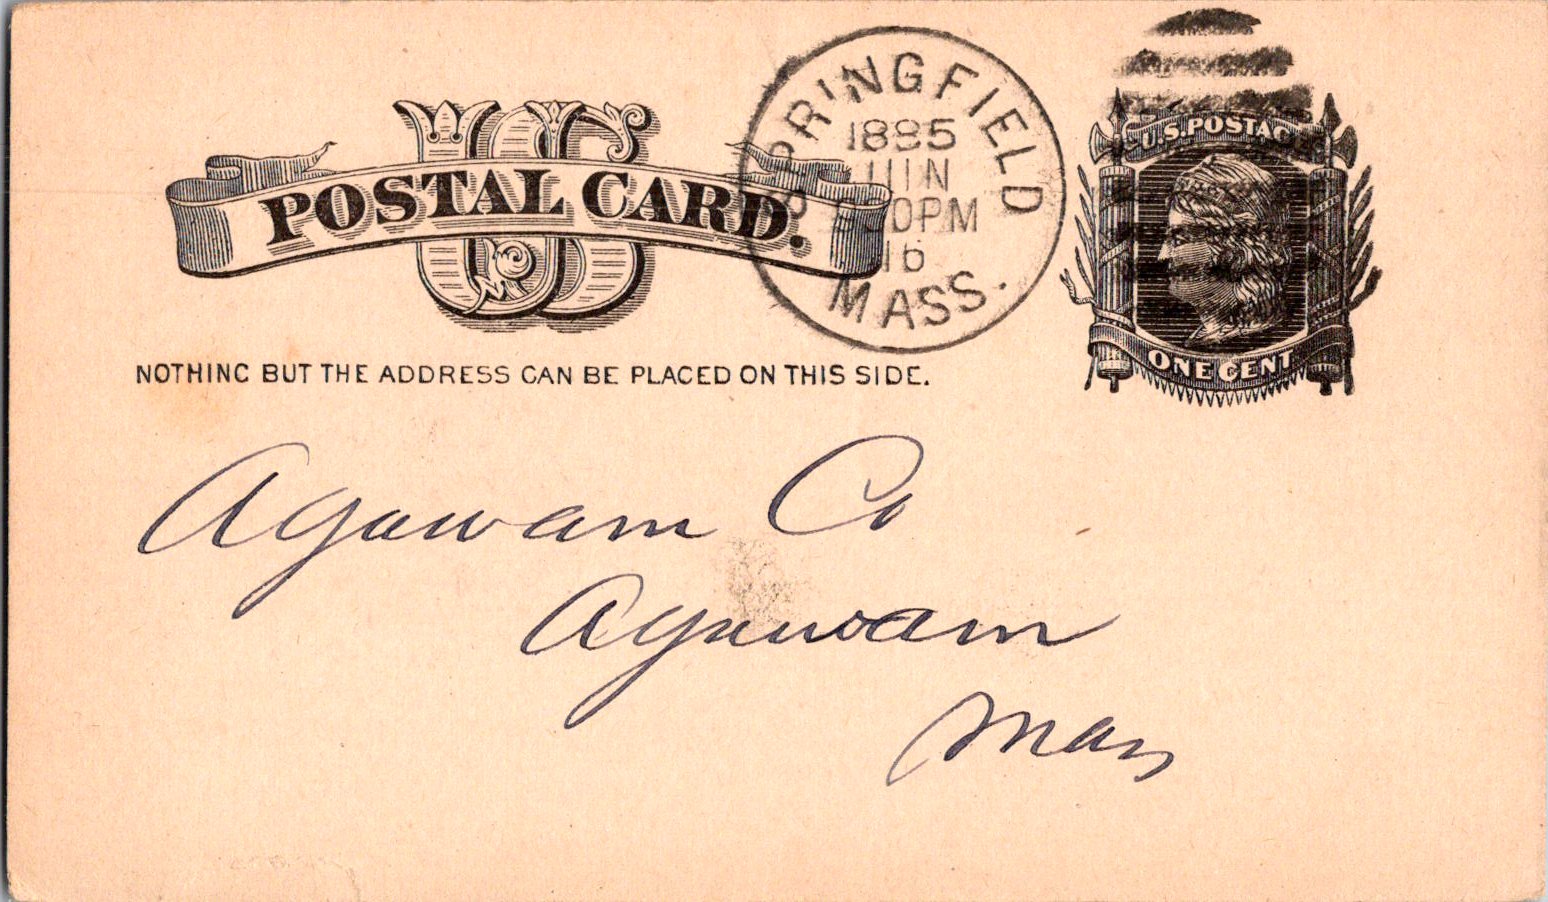 US
POSTAL CARD.
SPRINGFIELD
1885
JUN
0PM
16
MASS.
U.S. POSTAGE
ONE CENT
NOTHING BUT THE ADDRESS CAN BE PLACED ON THIS SIDE.
Agawam Co
Agawam
Mass